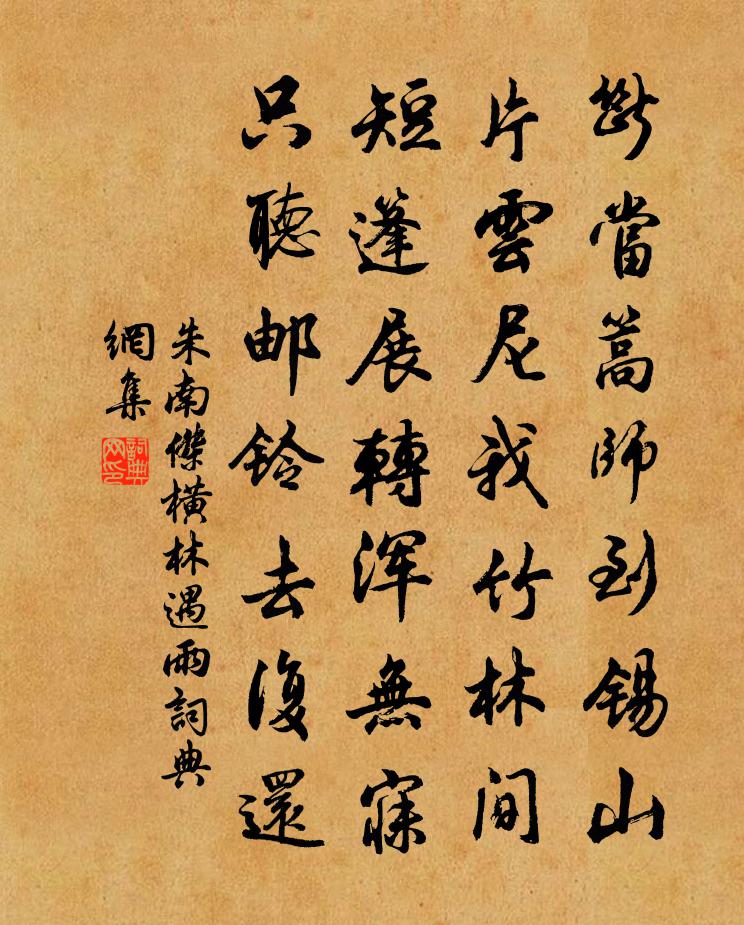 斷當篙師到錫山
片雲尼我竹林間
短篷展轉渾無寐
只聽邮鈴去復還
朱南傑橫林遇雨詞典
網集
詞典
网印